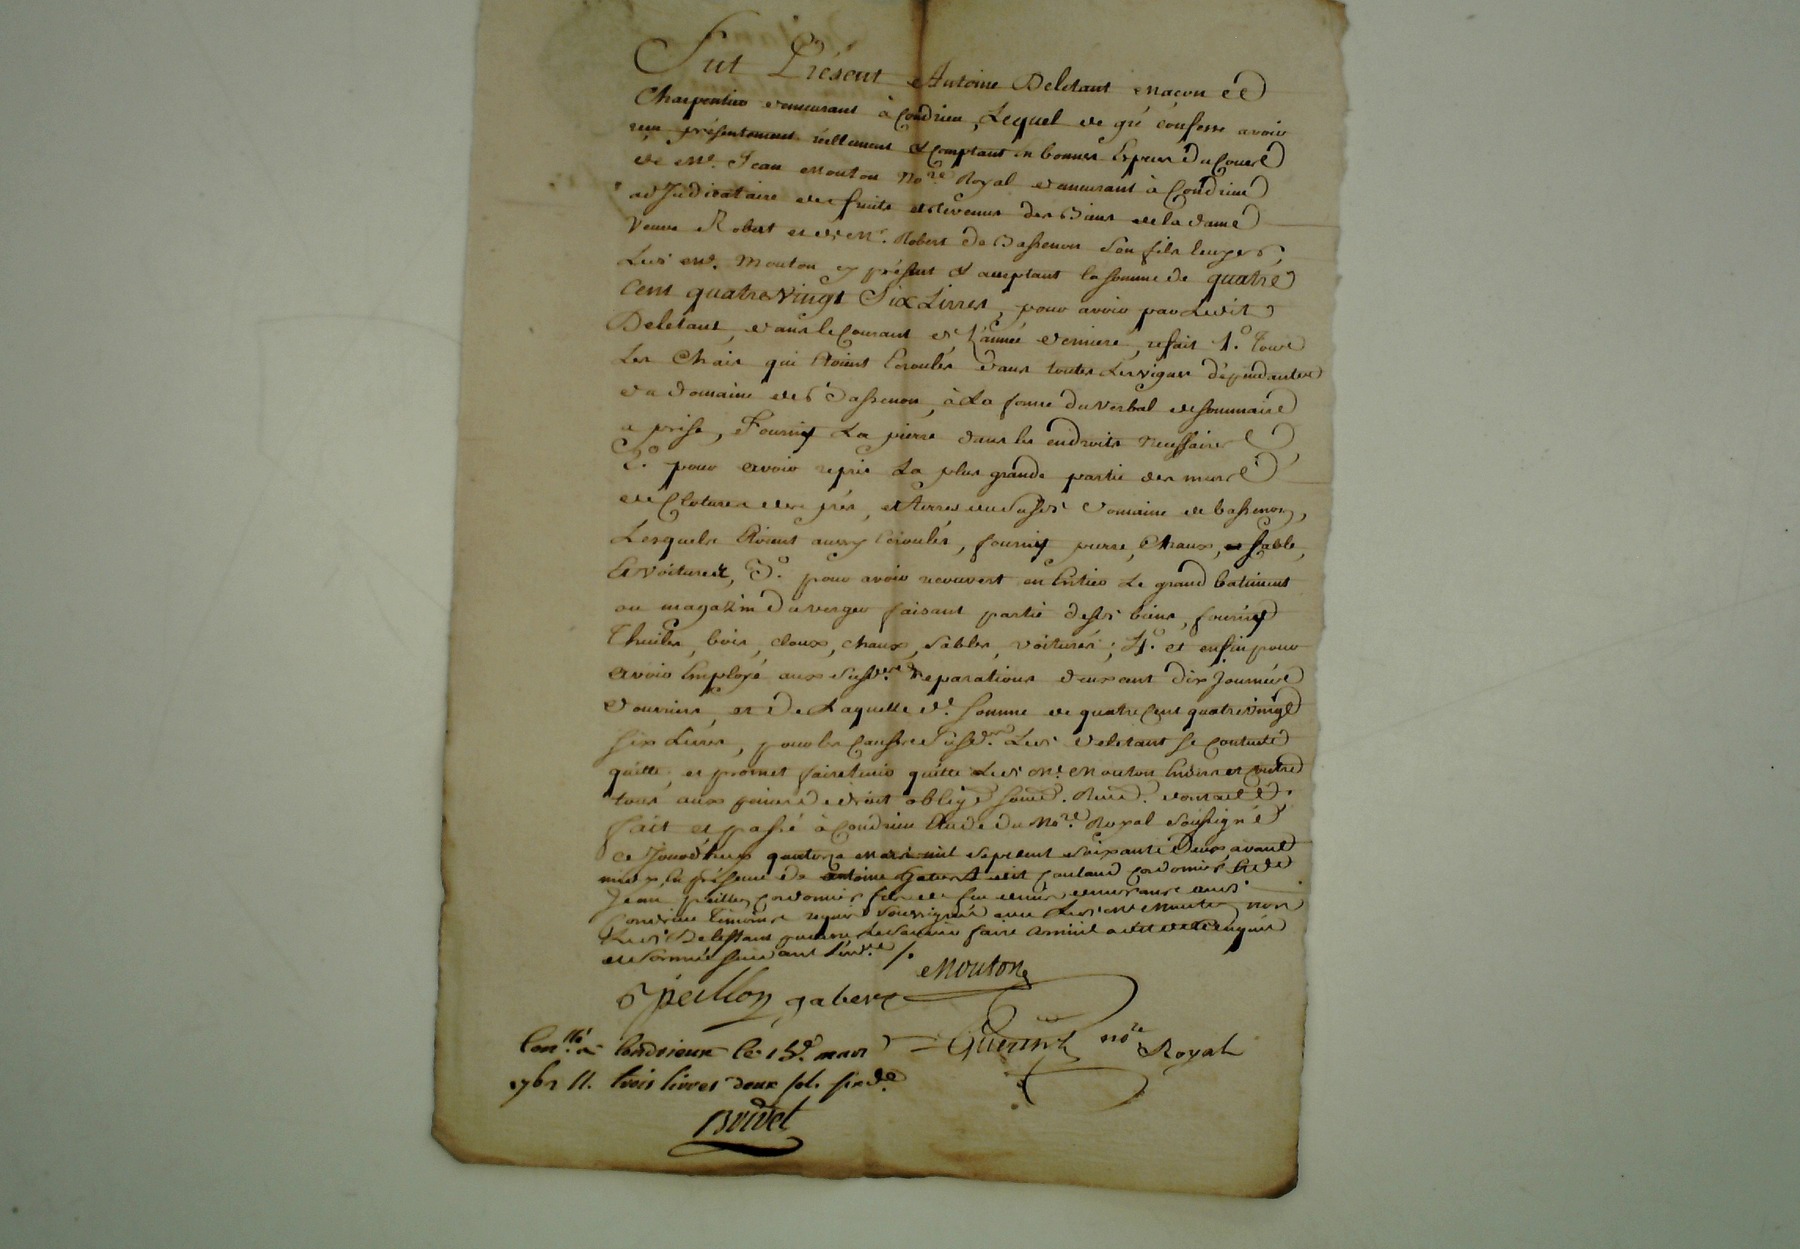 Fut Présent Antoine Deletant maçon et
Charpentier demeurant à Condrieu, Lequel de gré confesse avoir
reçu présentement réellement & comptant en bonnes Espèces du Cours
de Mr. Jean Mouton Nore. Royal demeurant à Condrieu
adjudicataire des fruits et Revenus des Biens de la dame
Veuve Robert et de Mr. Robert de Bassenon son fils
Led. mr. Mouton cy présent & acceptant la somme de quatre
Cent quatre vingt Six Livres, pour avoir par Ledit
Deletant, dans le Courant de L'année derniere, refait 1.o Tous
Les Chais qui étoient Ecroulés dans toutes Les vignes dépendantes
du domaine de Bassenon, à La forme du Verbal de sommaire
a prise, Fourny La pierre dans les endroits necessaires
2.o pour avoir repris La plus grande partie des murs
de Clotures des prés, et terres du susd. Domaine de bassenon,
Lesquels étoient aussy Ecroulés, fourny pierre, Chaux, et sable,
et voitures, 3.o pour avoir recouvert en Entier Le grand batiment
ou magazin du verger faisant partie desd. biens, fourny
Thuiles, bois, cloux, chaux, sables, voitures; 4.o et enfin pour
avoir Employé aux susd. Reparations deux cent dix Journées
d'ouvriers, et De Laquelle d. somme de quatre Cent quatre vingt
six Livres, pour les Causes susd. Led. deletant se Contente
quitte, et promet faire tenir quitte Led. mr. Mouton Envers et Contre
tous aux peines de droit obligé soum. Ren.
fait et passé à Condrieu Etude du Nore. Royal soussigné
ce Jourd'huy quatorze mars mil sept cent soixante Deux avant
midy, en présence de antoine Gabert dit cordonnier et de
Jean peillon cordonnier fils de feu demeurants aud.
Condrieu témoins requis soussignés avec Led. mr. Mouton, non
Led. Deletant pour ne scavoir faire Enquis
et sommé
Mouton
peillon gabert
Conllé. à Condrieux le 15e. mars
1762 rr. trois livres deux sols six d.
Guerin nore Royal
Brivet